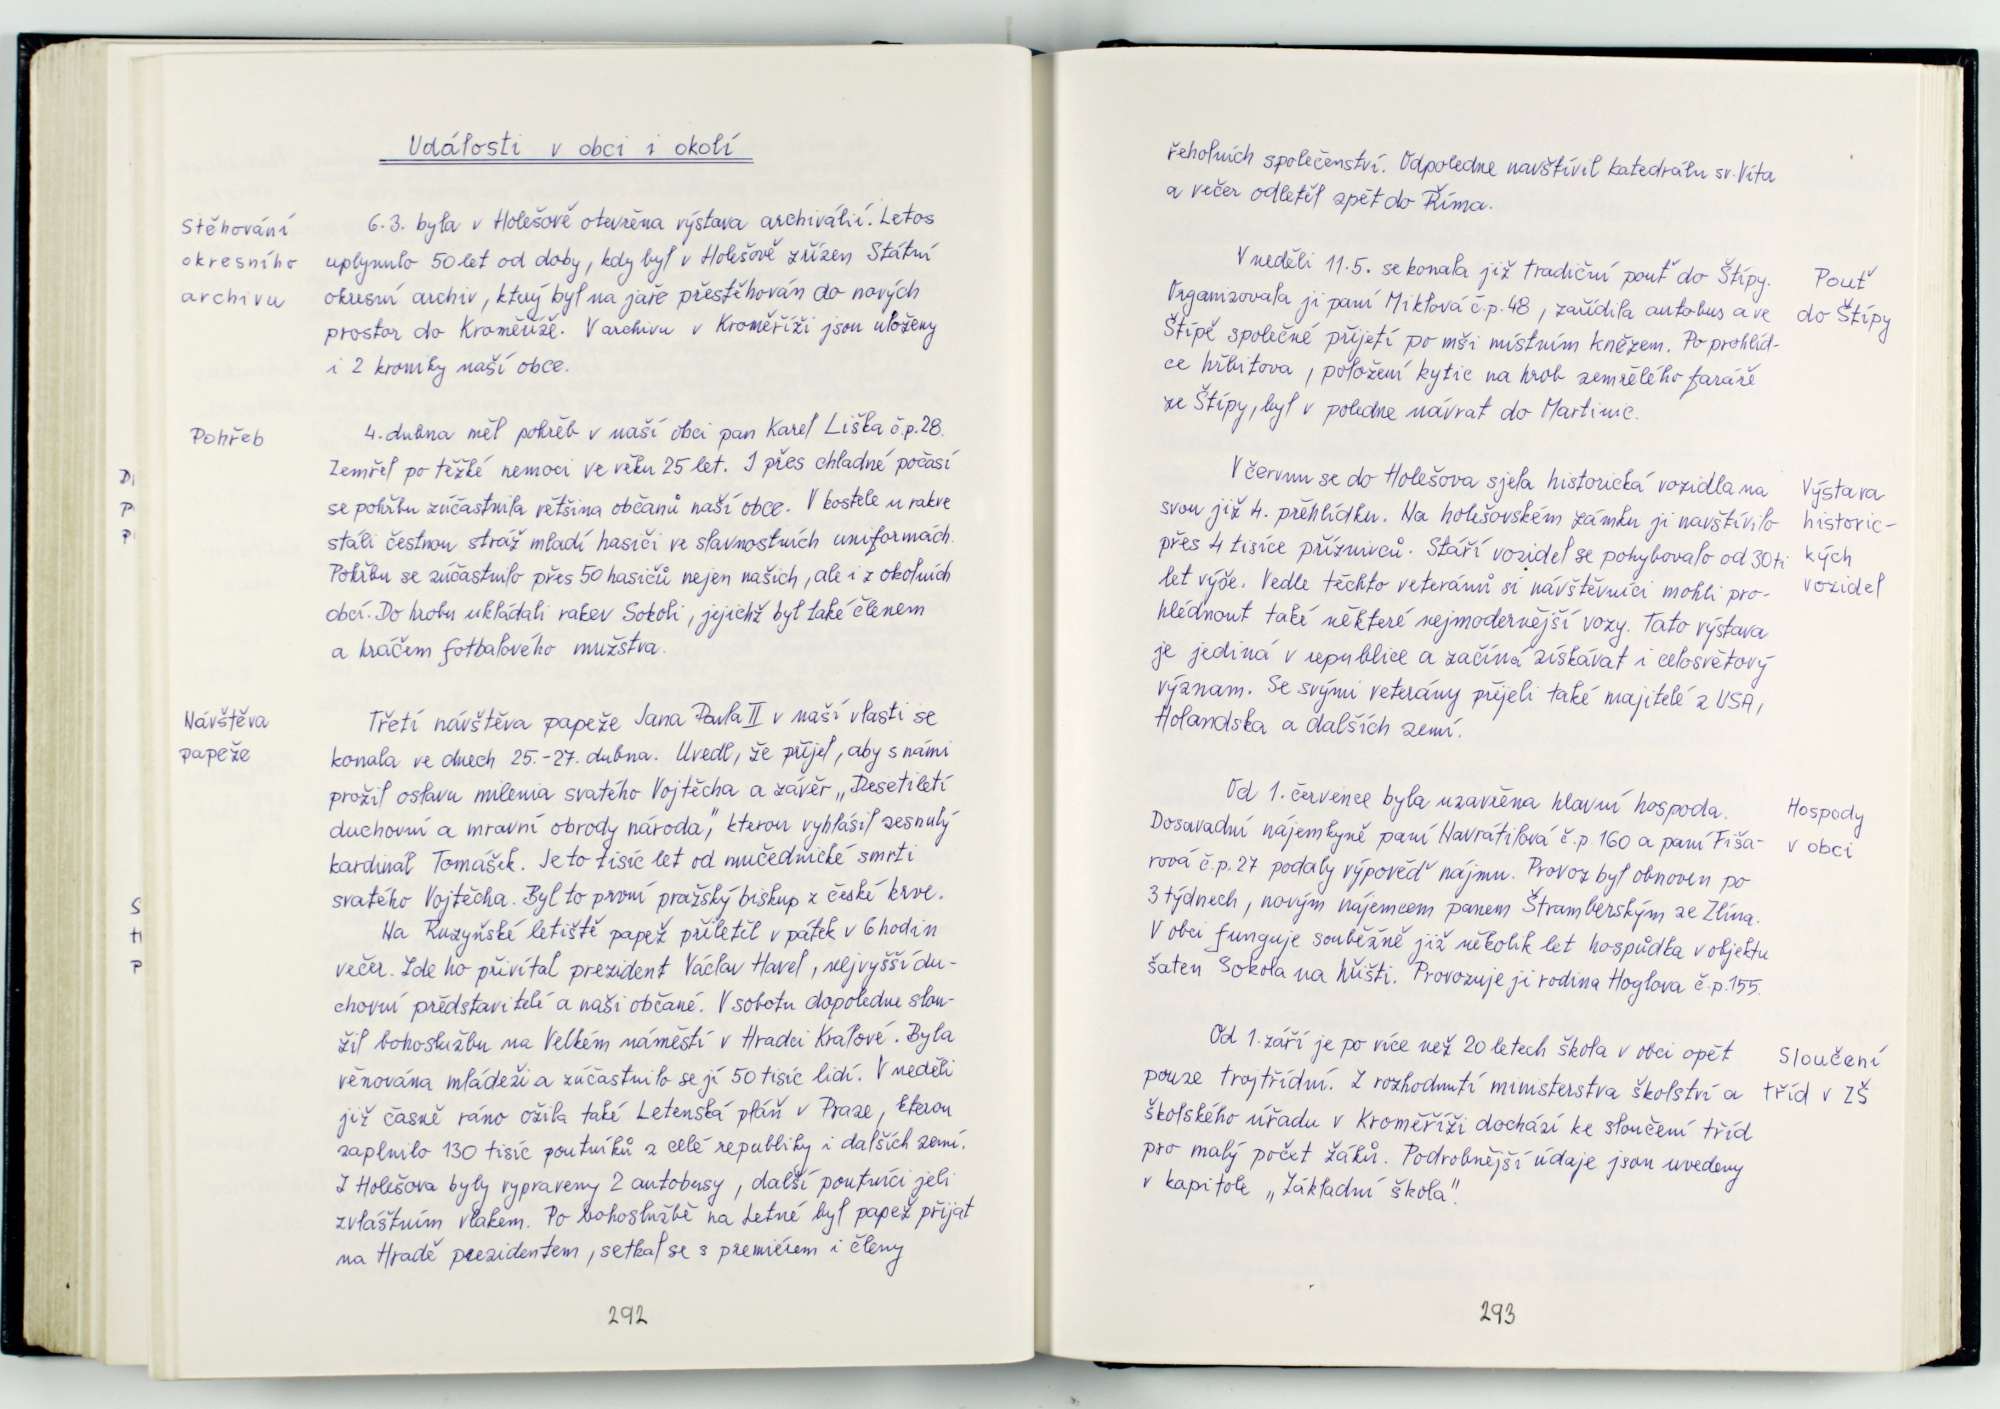 Události v obci i okolí
Stěhování
okresního
archivu
6.3. byla v Holešově otevřena výstava archiválií. Letos
uplynulo 50 let od doby, kdy byl v Holešově zřízen Státní
okresní archiv, který byl na jaře přestěhován do nových
prostor do Kroměříže. V archivu v Kroměříži jsou uloženy
i 2 kroniky naší obce.
Pohřeb
4. dubna měl pohřeb v naší obci pan Karel Liška č.p. 28.
Zemřel po těžké nemoci ve věku 25 let. I přes chladné počasí
se pohřbu zúčastnila většina občanů naší obce. V kostele u rakve
stáli čestnou stráž mladí hasiči ve slavnostních uniformách.
Pohřbu se zúčastnilo přes 50 hasičů nejen našich, ale i z okolních
obcí. Do hrobu ukládali rakev Sokoli, jejichž byl také členem
a hráčem fotbalového mužstva.
Návštěva
papeže
Třetí návštěva papeže Jana Pavla II v naší vlasti se
konala ve dnech 25.-27. dubna. Uvedl, že přijel, aby s námi
prožil oslavu milenia svatého Vojtěcha a závěr „Desetiletí
duchovní a mravní obrody národa", kterou vyhlásil zesnulý
kardinál Tomášek. Je to tisíc let od mučednické smrti
svatého Vojtěcha. Byl to první pražský biskup z české krve.
Na Ruzyňské letiště papež přiletěl v pátek v 6 hodin
večer. Zde ho přivítal prezident Václav Havel, nejvyšší du-
chovní představitelé a naši občané. V sobotu dopoledne slou-
žil bohoslužbu na Velkém náměstí v Hradci Králové. Byla
věnována mládeži a zúčastnilo se jí 50 tisíc lidí. V neděli
již časně ráno ožila také Letenská pláň v Praze, kterou
zaplnilo 130 tisíc poutníků z celé republiky i dalších zemí.
Z Holešova byly vypraveny 2 autobusy, další poutníci jeli
zvláštním vlakem. Po bohoslužbě na Letné byl papež přijat
na Hradě prezidentem, setkal se s premiérem i členy
292
řeholních společenství. Odpoledne navštívil katedrálu sv. Víta
a večer odletěl zpět do Říma.
V neděli 11.5. se konala již tradiční pouť do Štípy.
Organizovala ji paní Miklová č.p. 48, zařídila autobus a ve
Štípě společné přijetí po mši místním knězem. Po prohlíd-
ce hřbitova, položení kytic na hrob zemřelého faráře
ze Štípy, byl v poledne návrat do Martinic.
Pouť
do Štípy
V červnu se do Holešova sjela historická vozidla na
svou již 4. přehlídku. Na holešovském zámku ji navštívilo
přes 4 tisíce příznivců. Stáří vozidel se pohybovalo od 30ti
let výše. Vedle těchto veteránů si návštěvníci mohli pro-
hlédnout také některé nejmodernější vozy. Tato výstava
je jediná v republice a začíná získávat i celosvětový
význam. Se svými veterány přijeli také majitelé z USA,
Holandska a dalších zemí.
Výstava
historic-
kých
vozidel
Od 1. července byla uzavřena hlavní hospoda.
Dosavadní nájemkyně paní Navrátilová č.p 160 a paní Fiša-
rová č.p. 27 podaly výpověď nájmu. Provoz byl obnoven po
3 týdnech, novým nájemcem panem Štramberským ze Zlína.
V obci funguje souběžně již několik let hospůdka v objektu
šaten Sokola na hřišti. Provozuje ji rodina Hoglova č.p. 155.
Hospody
v obci
Od 1. září je po více než 20 letech škola v obci opět
pouze trojtřídní. Z rozhodnutí ministerstva školství a
školského úřadu v Kroměříži dochází ke sloučení tříd
pro malý počet žáků. Podrobnější údaje jsou uvedeny
v kapitole „Základní škola".
Sloučení
tříd v ZŠ
293